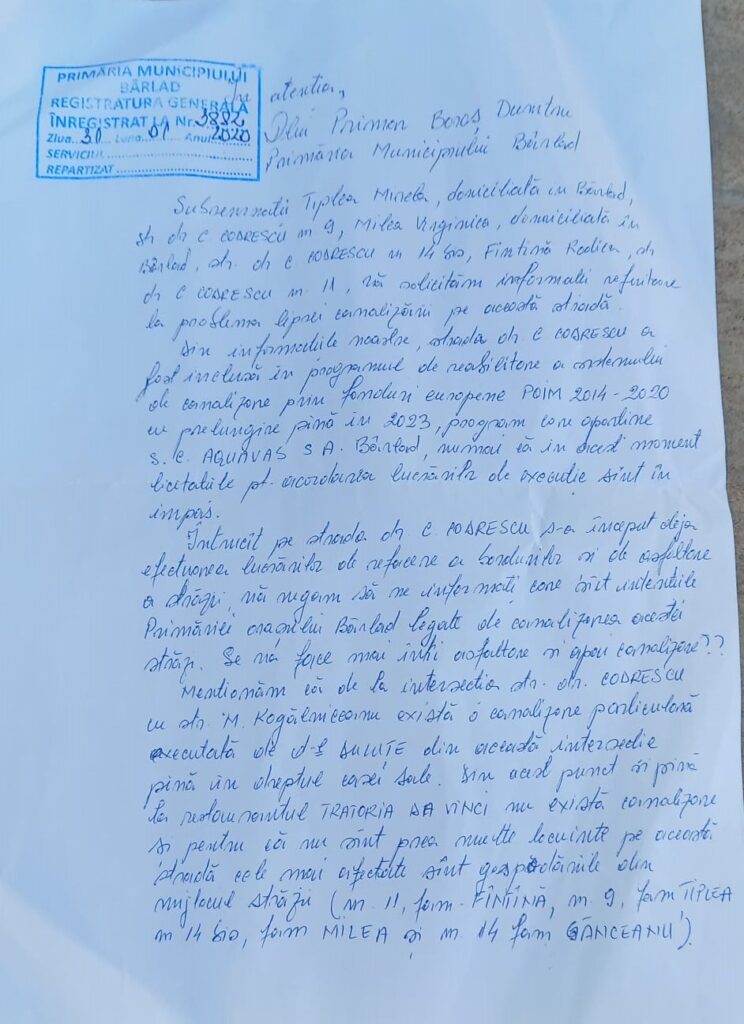 PRIMĂRIA MUNICIPIULUI
BÂRLAD
REGISTRATURA GENERALĂ
ÎNREGISTRAT LA Nr. 3882
Ziua 30 Luna 01 Anul 2020
SERVICIUL
REPARTIZAT
În atentia,
Dlui Primar Boroș Dumitru
Primăria Municipiului Bârlad
Subsemnatii Tiplea Mirela, domiciliată în Bârlad,
str dr C CODRESCU nr 9, Milea Virginica, domiciliată în
Bârlad, str. dr C CODRESCU nr 14 bis, Fîntînă Rodica, str
dr C CODRESCU nr. 11, vă solicităm informatii referitoare
la problema lipsei canalizării pe această stradă.
Din informatiile noastre, strada dr. C CODRESCU a
fost inclusă în programul de reabilitare a sistemului
de canalizare prin fonduri europene POIM 2014-2020
cu prelungire pînă în 2023, program care apartine
S. C. AQUAVAS S A. Bârlad, numai că în acest moment
licitatiile pt. acordarea lucrărilor de executie sînt în
impas.
Întrucît pe strada dr C. CODRESCU s-a început deja
efectuarea lucrărilor de refacere a bordurilor si de asfaltare
a străzii, vă rugam să ne informati care sînt intentiile
Primăriei orașului Bârlad legate de canalizarea acestei
străzi. Se va face mai întîi asfaltare si apoi canalizare??
Mentionăm că de la intersectia str. dr. CODRESCU
cu str. M. Kogălniceanu există o canalizare particulară
executată de d-l SULUTE din această intersectie
pînă în dreptul casei sale. Din acest punct si pînă
la restaurantul TRATORIA DA VINCI nu există canalizare
si pentru că nu sînt prea multe locuinte pe această
stradă cele mai afectate sînt gospodăriile din
mijlocul străzii (nr. 11, fam. FÎNTÎNĂ, nr 9, fam TIPLEA
nr 14 bis, fam MILEA și nr 14 fam GÂNCEANU).